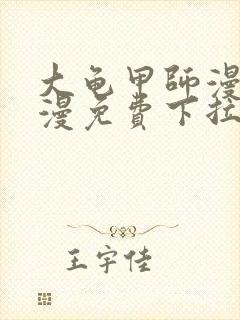 大龟甲師漫
漫免費下拉
王宇佳